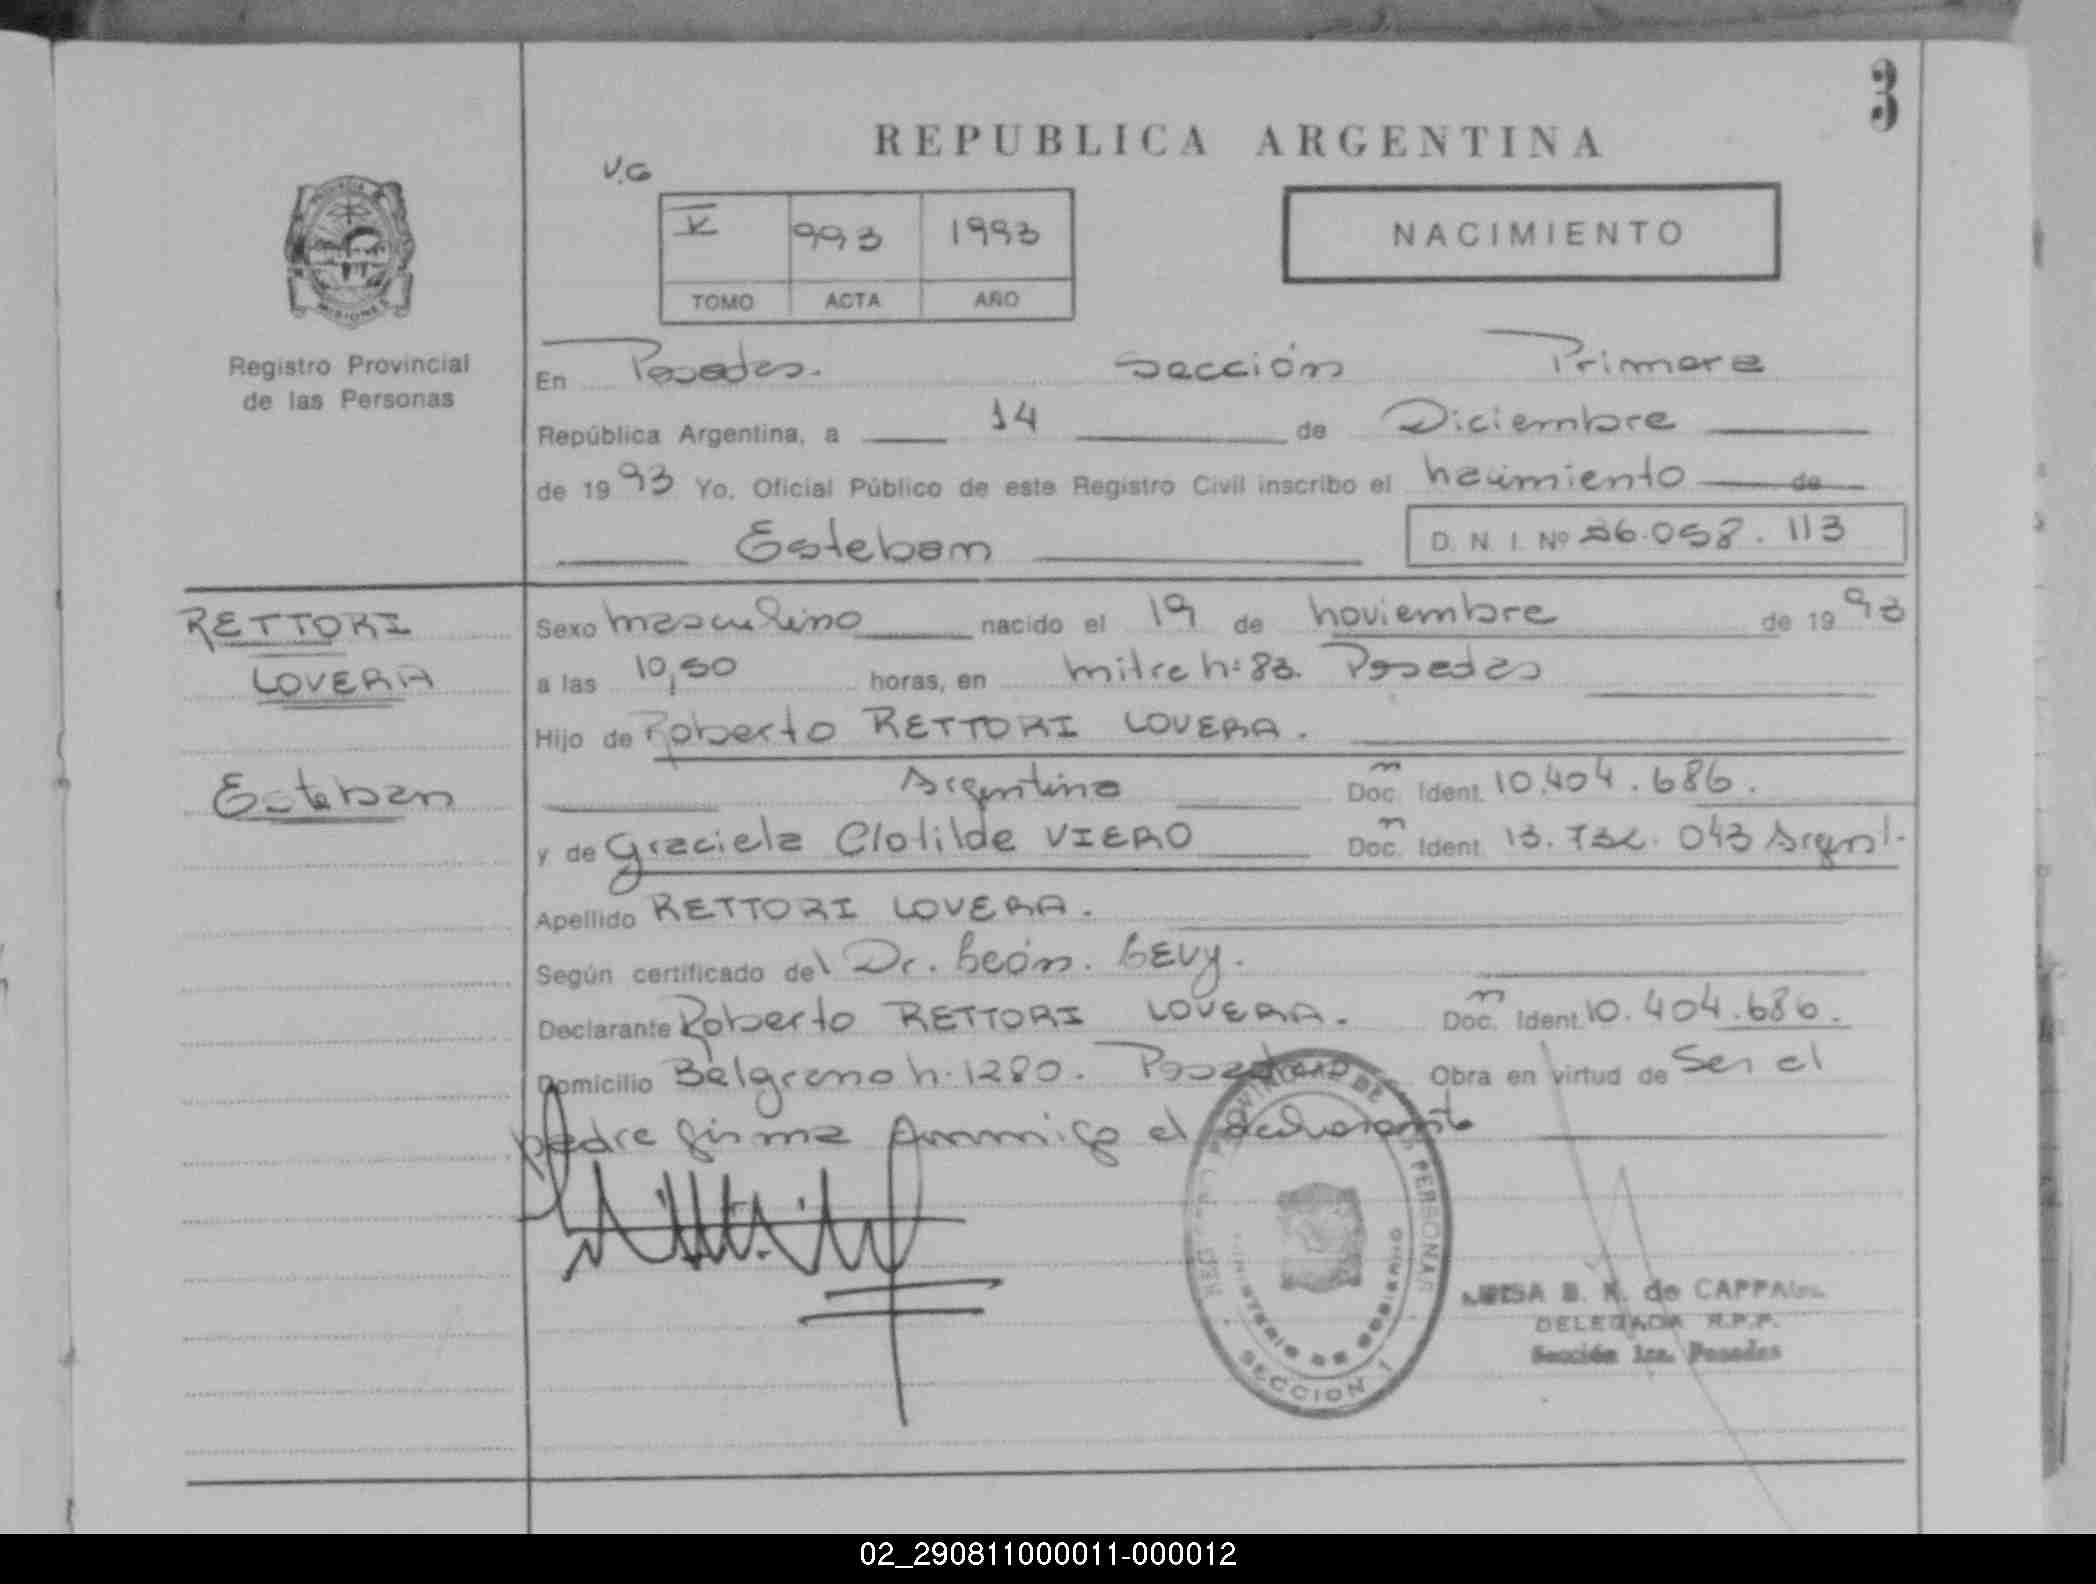 3
REPUBLICA ARGENTINA
V.G
V 993 1993
TOMO ACTA AÑO
NACIMIENTO
MISIONES
Registro Provincial
de las Personas
En Posadas. Sección Primera
República Argentina, a 14 de Diciembre
de 1993 Yo, Oficial Público de este Registro Civil inscribo el nacimiento de
Esteban
D. N. I. Nº 36.058.113
RETTORI
LOVERA
Esteban
Sexo masculino nacido el 19 de noviembre de 1993
a las 10,50 horas, en mitre n: 83. Posadas
Hijo de Roberto RETTORI LOVERA.
Argentino Doc. Ident. 10.404.686.
y de Graciela Clotilde VIERO Doc. Ident. 13.732.043 Argent.
Apellido RETTORI LOVERA.
Según certificado del Dr. León. LEVY.
Declarante Roberto RETTORI LOVERA. Doc. Ident. 10.404.686.
Domicilio Belgrano n. 1280. Posadas Obra en virtud de Ser el
padre firma conmigo el declarante
PROVINCIAL DE LAS PERSONAS
MINISTERIO DE GOBIERNO
SECCION 1
B. N. de
DELEGADA R.P.P.
Sección 1ra. Posadas
02_290811000011-000012